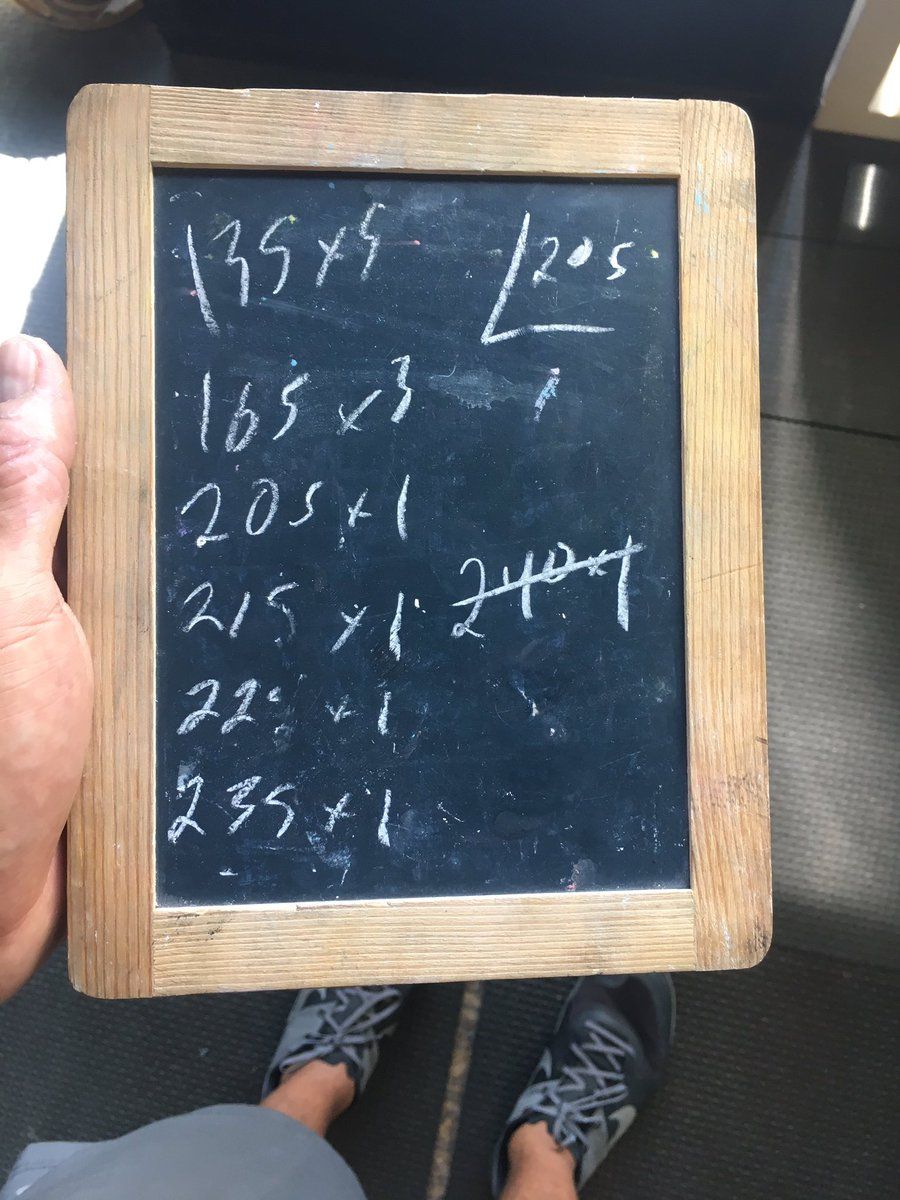 135 x 5
205
165 x 3
205 x 1
215 x 1
240 x 1
225 x 1
235 x 1